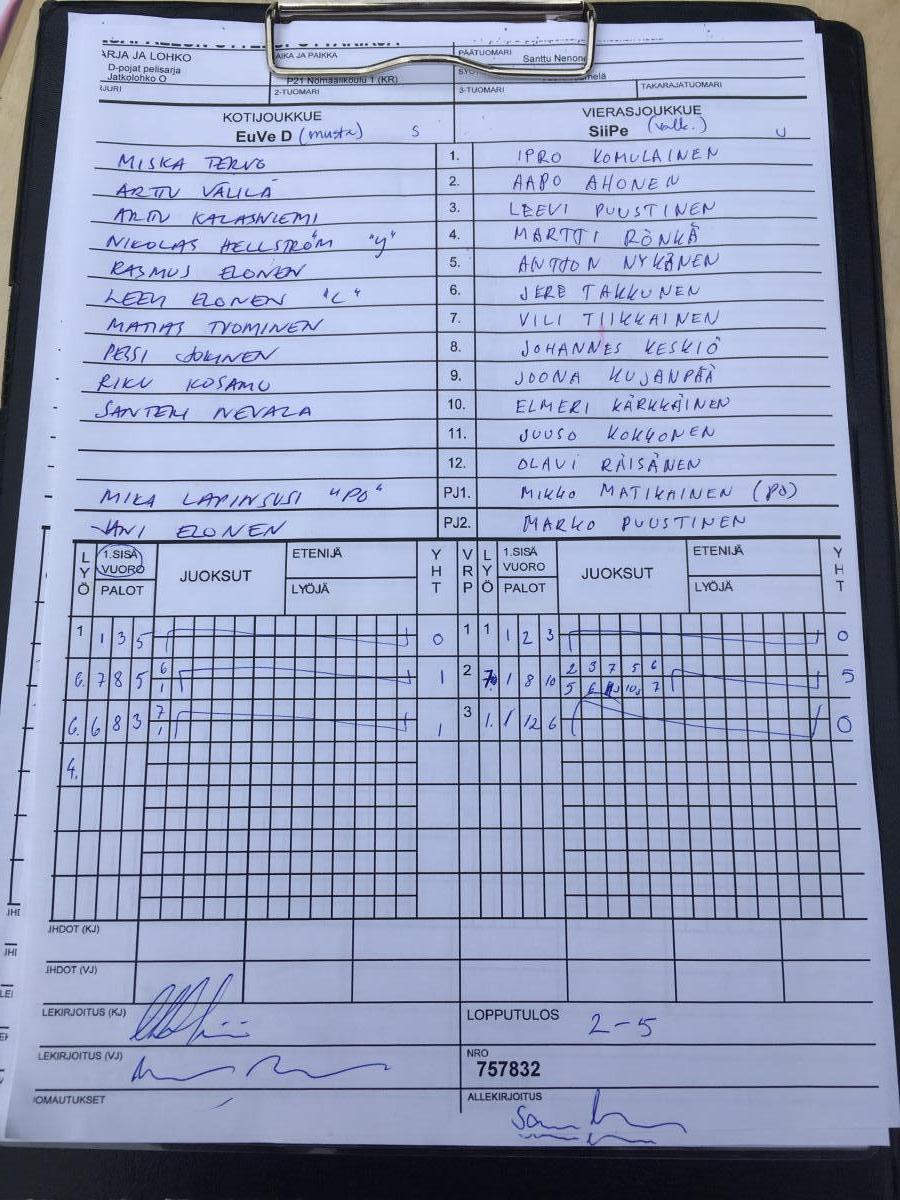 ARJA JA LOHKO
D-pojat pelisarja
Jatkolohko O
AIKA JA PAIKKA
P21 Nomaalikoulu 1 (KR)
PÄÄTUOMARI
Santtu Nenone
2-TUOMARI
3-TUOMARI
TAKARAJATUOMARI
KOTIJOUKKUE
EuVe D (musta) S
VIERASJOUKKUE
SiiPe (valk.) U
MISKA TERVO 1. IPRO KOMULAINEN
ARTTU VÄLILÄ 2. AAPO AHONEN
ARTTU KALASNIEMI 3. LEEVI PUUSTINEN
NIKOLAS HELLSTRÖM 4. MARTTI RÖNKÄ
RASMUS ELONEN 5. ANTTON NYKÄNEN
LEEVI ELONEN "C" 6. JERE TAKKUNEN
MATIAS TUOMINEN 7. VILI TIIKKAINEN
PESSI JOKINEN 8. JOHANNES KESKIÖ
RIKU KOSAMO 9. JOONA KUJANPÄÄ
SANTERI NEVALA 10. ELMERI KÄRKKÄINEN
11. JUUSO KOKKONEN
12. OLAVI RÄISÄNEN
MIKA LAPINSUSI "PO" PJ1. MIKKO MATIKAINEN (PO)
JANI ELONEN PJ2. MARKO PUUSTINEN
LYÖ 1.SISÄ VUORO PALOT JUOKSUT ETENIJÄ LYÖJÄ YHT VRP LYÖ 1.SISÄ VUORO PALOT JUOKSUT ETENIJÄ LYÖJÄ YHT
1 1 3 5 0 1 1 1 2 3 0
6. 7 8 5 6 1 2 7. 1 8 10 2 3 7 5 6 5
1 5 6 10 7
6. 6 8 3 7 1 3 1. 1 12 6 0
1
4.
JHDOT (KJ)
JHDOT (VJ)
LEKIRJOITUS (KJ)
LOPPUTULOS 2-5
LEKIRJOITUS (VJ)
NRO
757832
OMAUTUKSET
ALLEKIRJOITUS